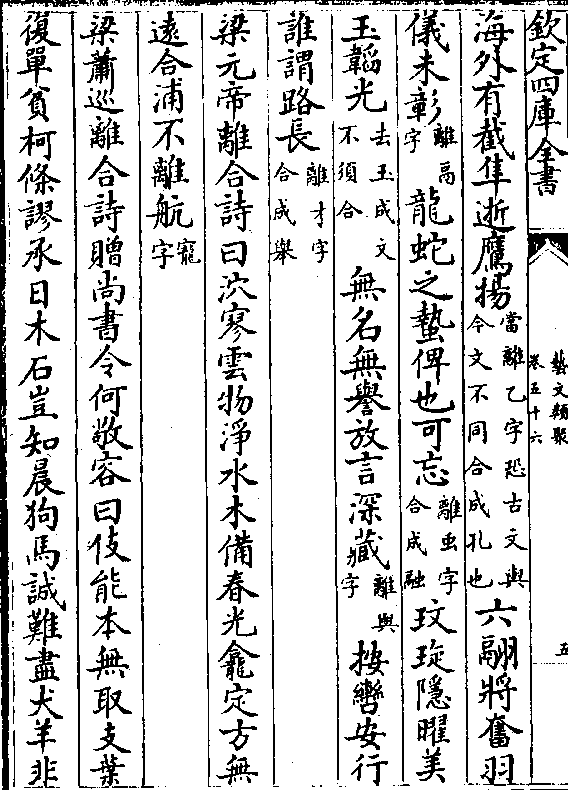 欽定四庫全書
藝文類聚
卷五十六
五
海外有截隼逝鷹揚當離乙字恐古文與今文不同合成孔也六翮將奮羽
儀未彰離鬲字龍蛇之蟄俾也可忘離虫字合成融玟琁隱曜美
玉韜光去玉成文不須合無名無譽放言深藏離與字按轡安行
誰謂路長離才字合成舉
梁元帝離合詩曰泬寥雲物淨水木備春光龕定方無
遠合浦不離航寵字
梁蕭巡離合詩贈尚書令何敬容曰伎能本無取支葉
復單貧柯條謬承日木石豈知晨狗馬誠難盡犬羊非